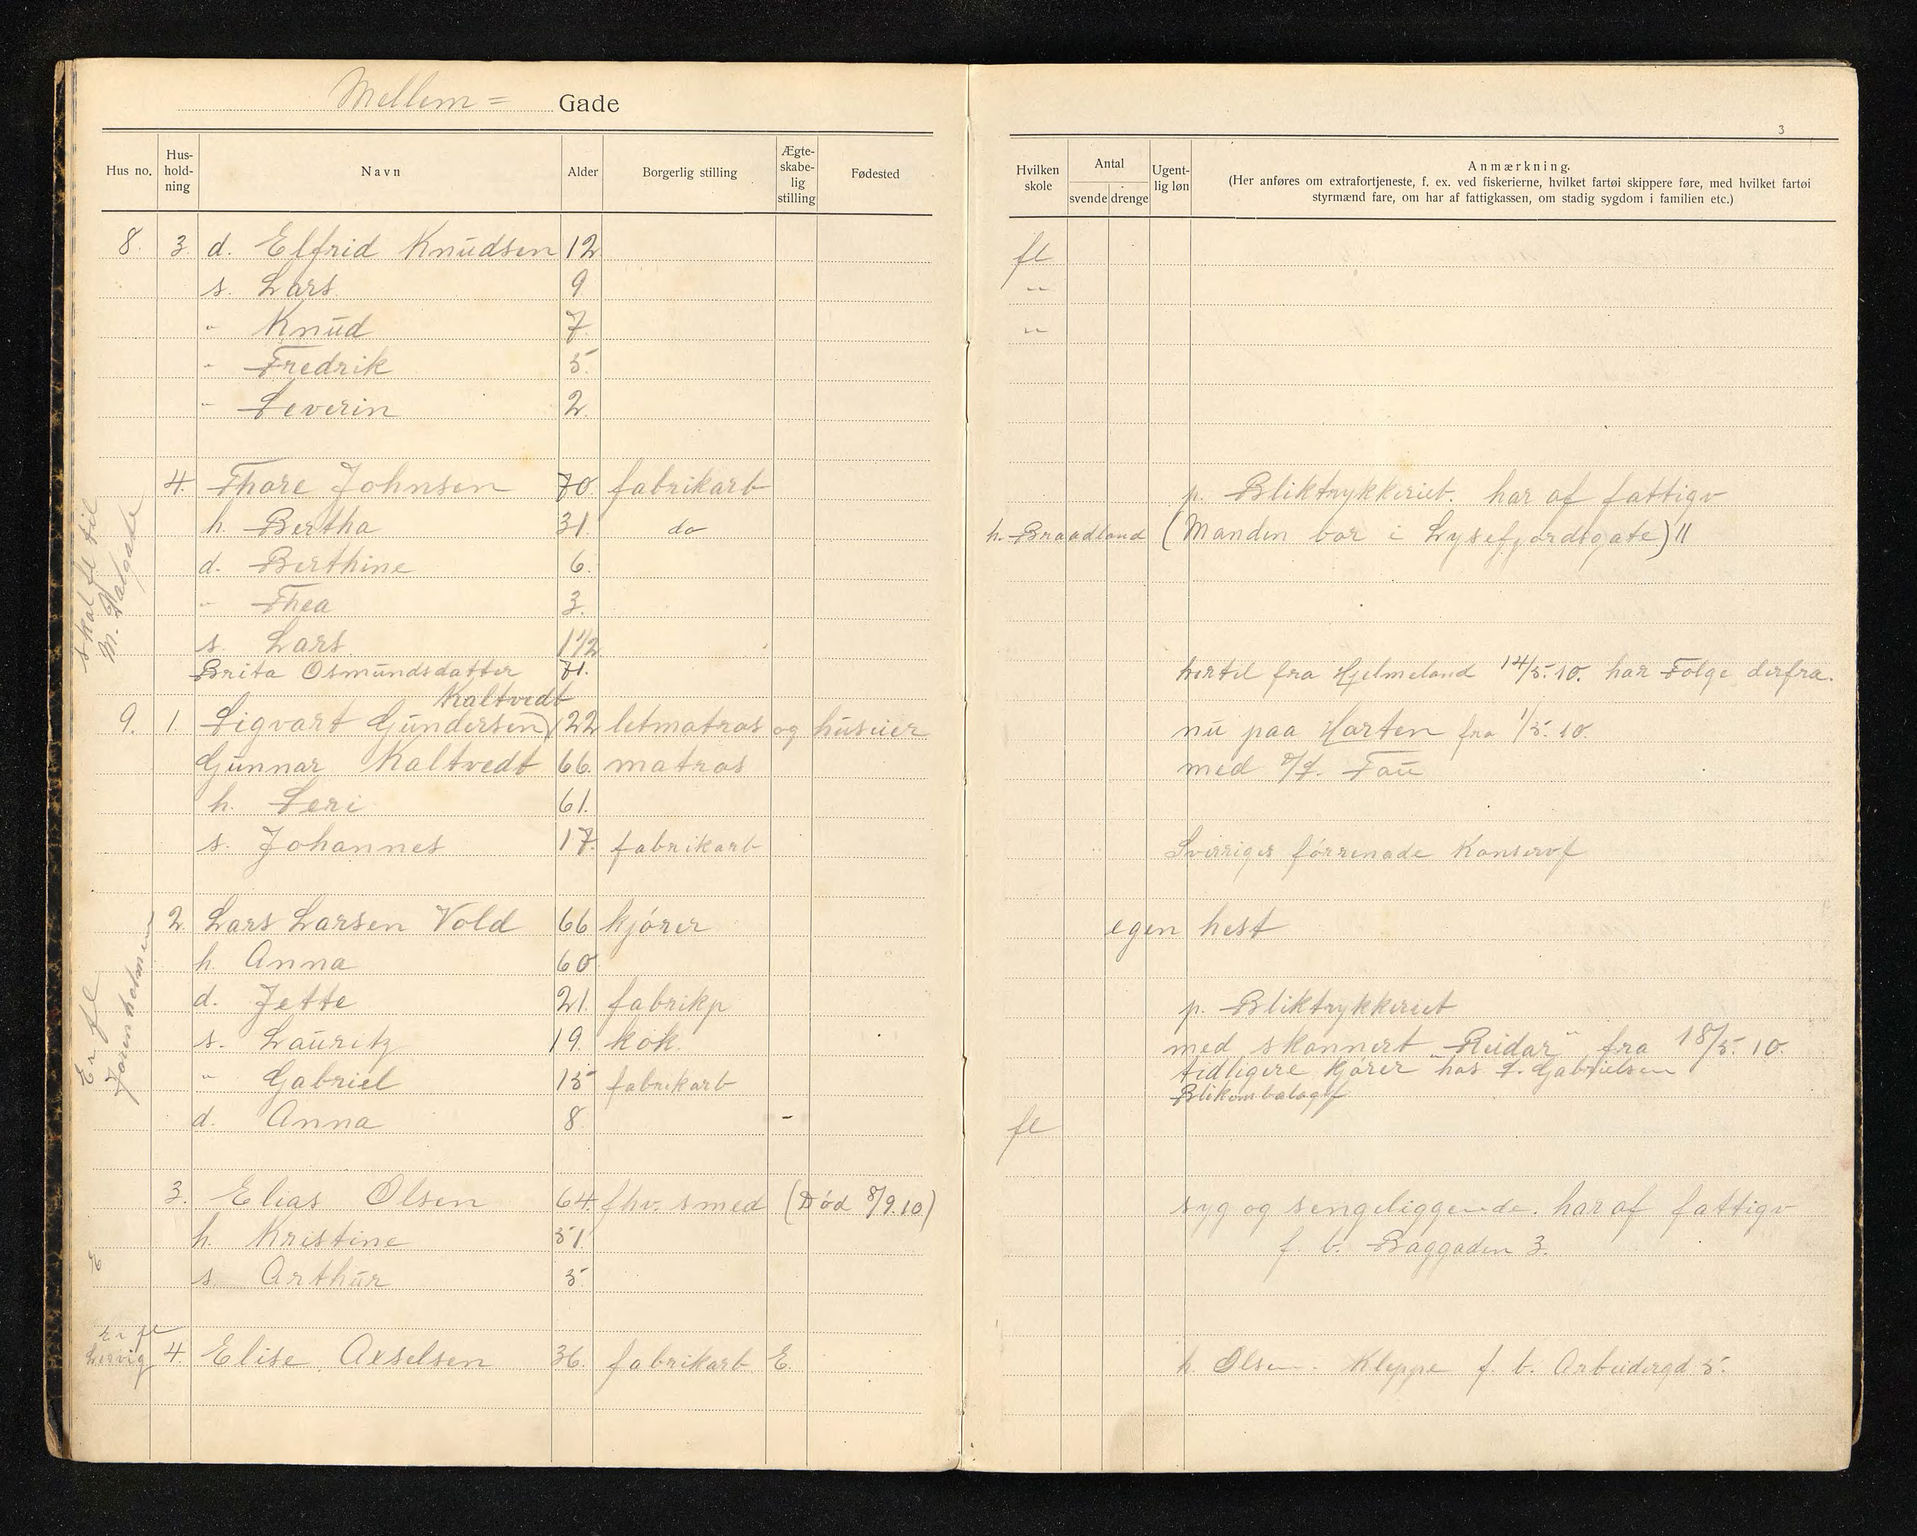 Mellem= Gade
3
Hus no. Hus-hold-ning Navn Alder Borgerlig stilling Ægte-skabe-lig stilling Fødested Hvilken skole Antal svende drenge Ugent-lig løn Anmærkning.
(Her anføres om extrafortjeneste, f. ex. ved fiskerierne, hvilket fartøi skippere føre, med hvilket fartøi
styrmænd fare, om har af fattigkassen, om stadig sygdom i familien etc.)
8. 3. d. Elfrid Knudsen 12 fl
s. Lars 9 "
" Knud 7. "
" Fredrik 5.
" Severin 2.
4. Thore Johnsen 70. fabrikarb p. Bliktrykkeriet. har af fattigv
h. Bertha 31. do h. Braadland (Manden bor i Lysefjordsgate) 11
d. Berthine 6.
" Thea 3.
s. Lars 1 1/2
skal fl til
M. Dalgate
Brita Osmundsdatter 71. hertil fra Hjelmeland 14/5.10. har Følge derfra.
Kaltvedt
9. 1. Sigvart Gundersen) 22 letmatros og huseier nu paa Horten fra 1/5.10.
Gunnar Kaltvedt 66. matros med D/S. Fau
h. Seri 61.
s. Johannes 17. fabrikarb Sverriges förrenade Konservf
2. Lars Larsen Vold 66 kjører egen hest
h. Anna 60
d. Jette 21. fabrikp p. Bliktrykkeriet
s. Lauritz 19. kok. med skonnert "Reidar" fra 18/5.10.
" Gabriel 15 fabrikarb tidligere kjører hos S. Gabrielsen
Blikembalagef
d. Anna 8. - fl
Er fl
3. Elias Olsen 64. fhv. smed (Død 8/9.10) syg og sengeliggende. har af fattigv
h. Kristine 51. f. b. Baggaden 3.
E
s. Arthur 5.
Er fl
Lervig 4. Elise Axelsen 36. fabrikarb E. h. Olsen. Kleppe f. b. Arbeidergd 5.